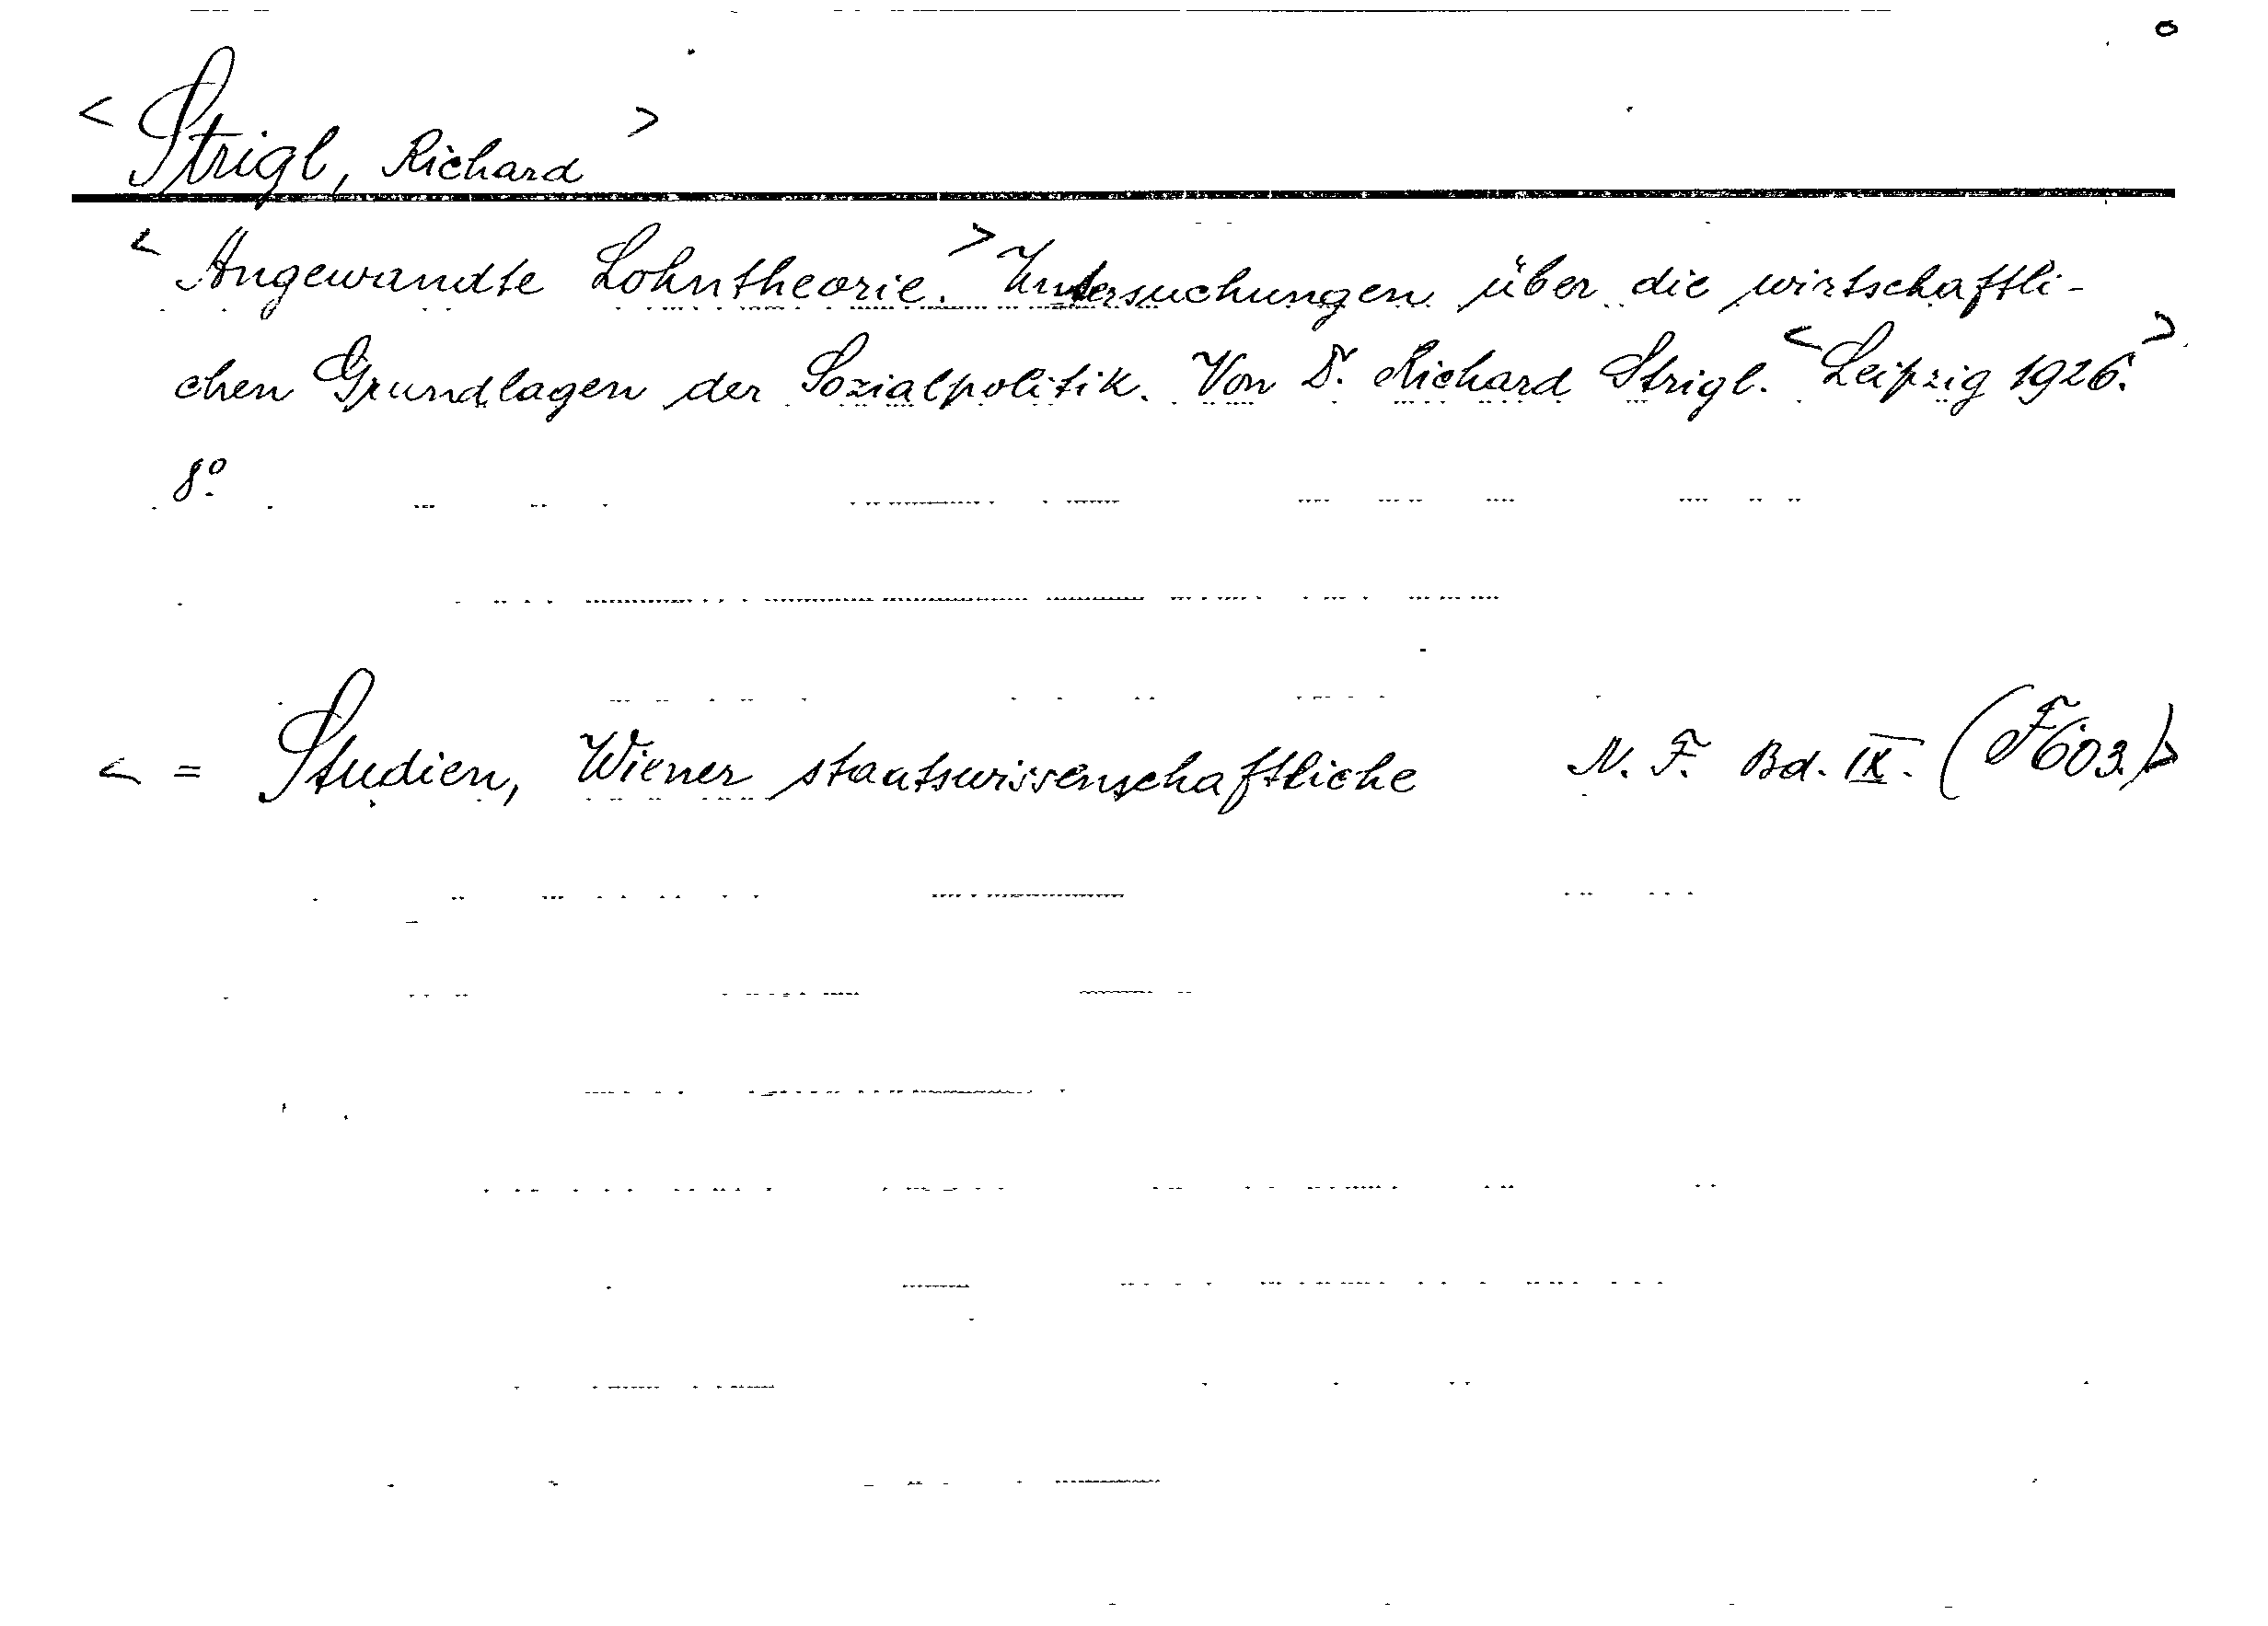 o
< Strigl, Richard >
< Angewandte Lohntheorie. > Untersuchungen über die wirtschaftli-
chen Grundlagen der Sozialpolitik. Von Dr. Richard Strigl. < Leipzig 1926. >
8°.
< = Studien, Wiener staatswissenschaftliche N. F. Bd. IX. (F 603.) >